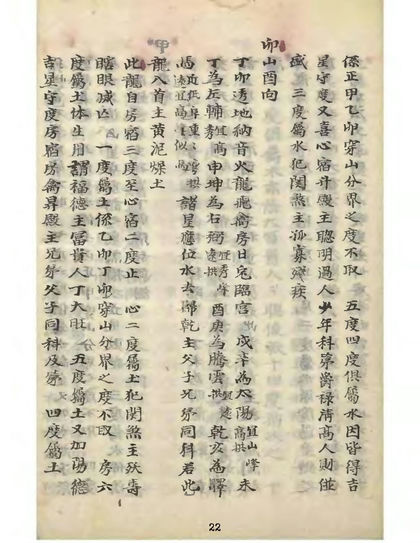 係正甲乙卯穿山分界之度不取 五度四度俱屬水因皆得吉
星守度又喜心宿升殿主聰明過人少年科第爵祿清高人財並
盛 三度屬水犯関煞主孤寡残疾
卯山酉向
丁卯透地納音火龍飛斋房日兔臨宮 戌辛為太陽宜山峰高拱 未
丁為左輔 高 申坤為右弼 宜秀峰遠拱 酉庚為騰雲 拱 乾亥為
遠 低 宜高 似 為 諸星應位水去歸乾主父子兄弟同科若此
龍入首主黃泥燥土
此龍自房宿三度至心宿二度止 心二度屬土犯関煞主殀壽
瞎眼城凶 一度屬土係乙卯丁卯穿山分界之度不取 房六
度屬土体生用謂福德主富貴人丁大旺 五度屬土又加陽德
吉星守度房宿房斋昇殿主兄弟父子同科及第 四度屬土
22